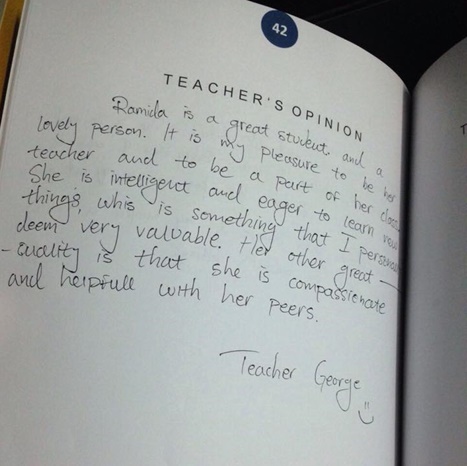 42
TEACHER'S OPINION
Ramida is a great student and a
lovely person. It is my pleasure to be her
teacher and to be a part of her class.
She is intelligent and eager to learn new
things, whis is something that I personaly
deem very valuable. Her other great —
- quality is that she is compassionate
and helpfull with her peers.
Teacher George